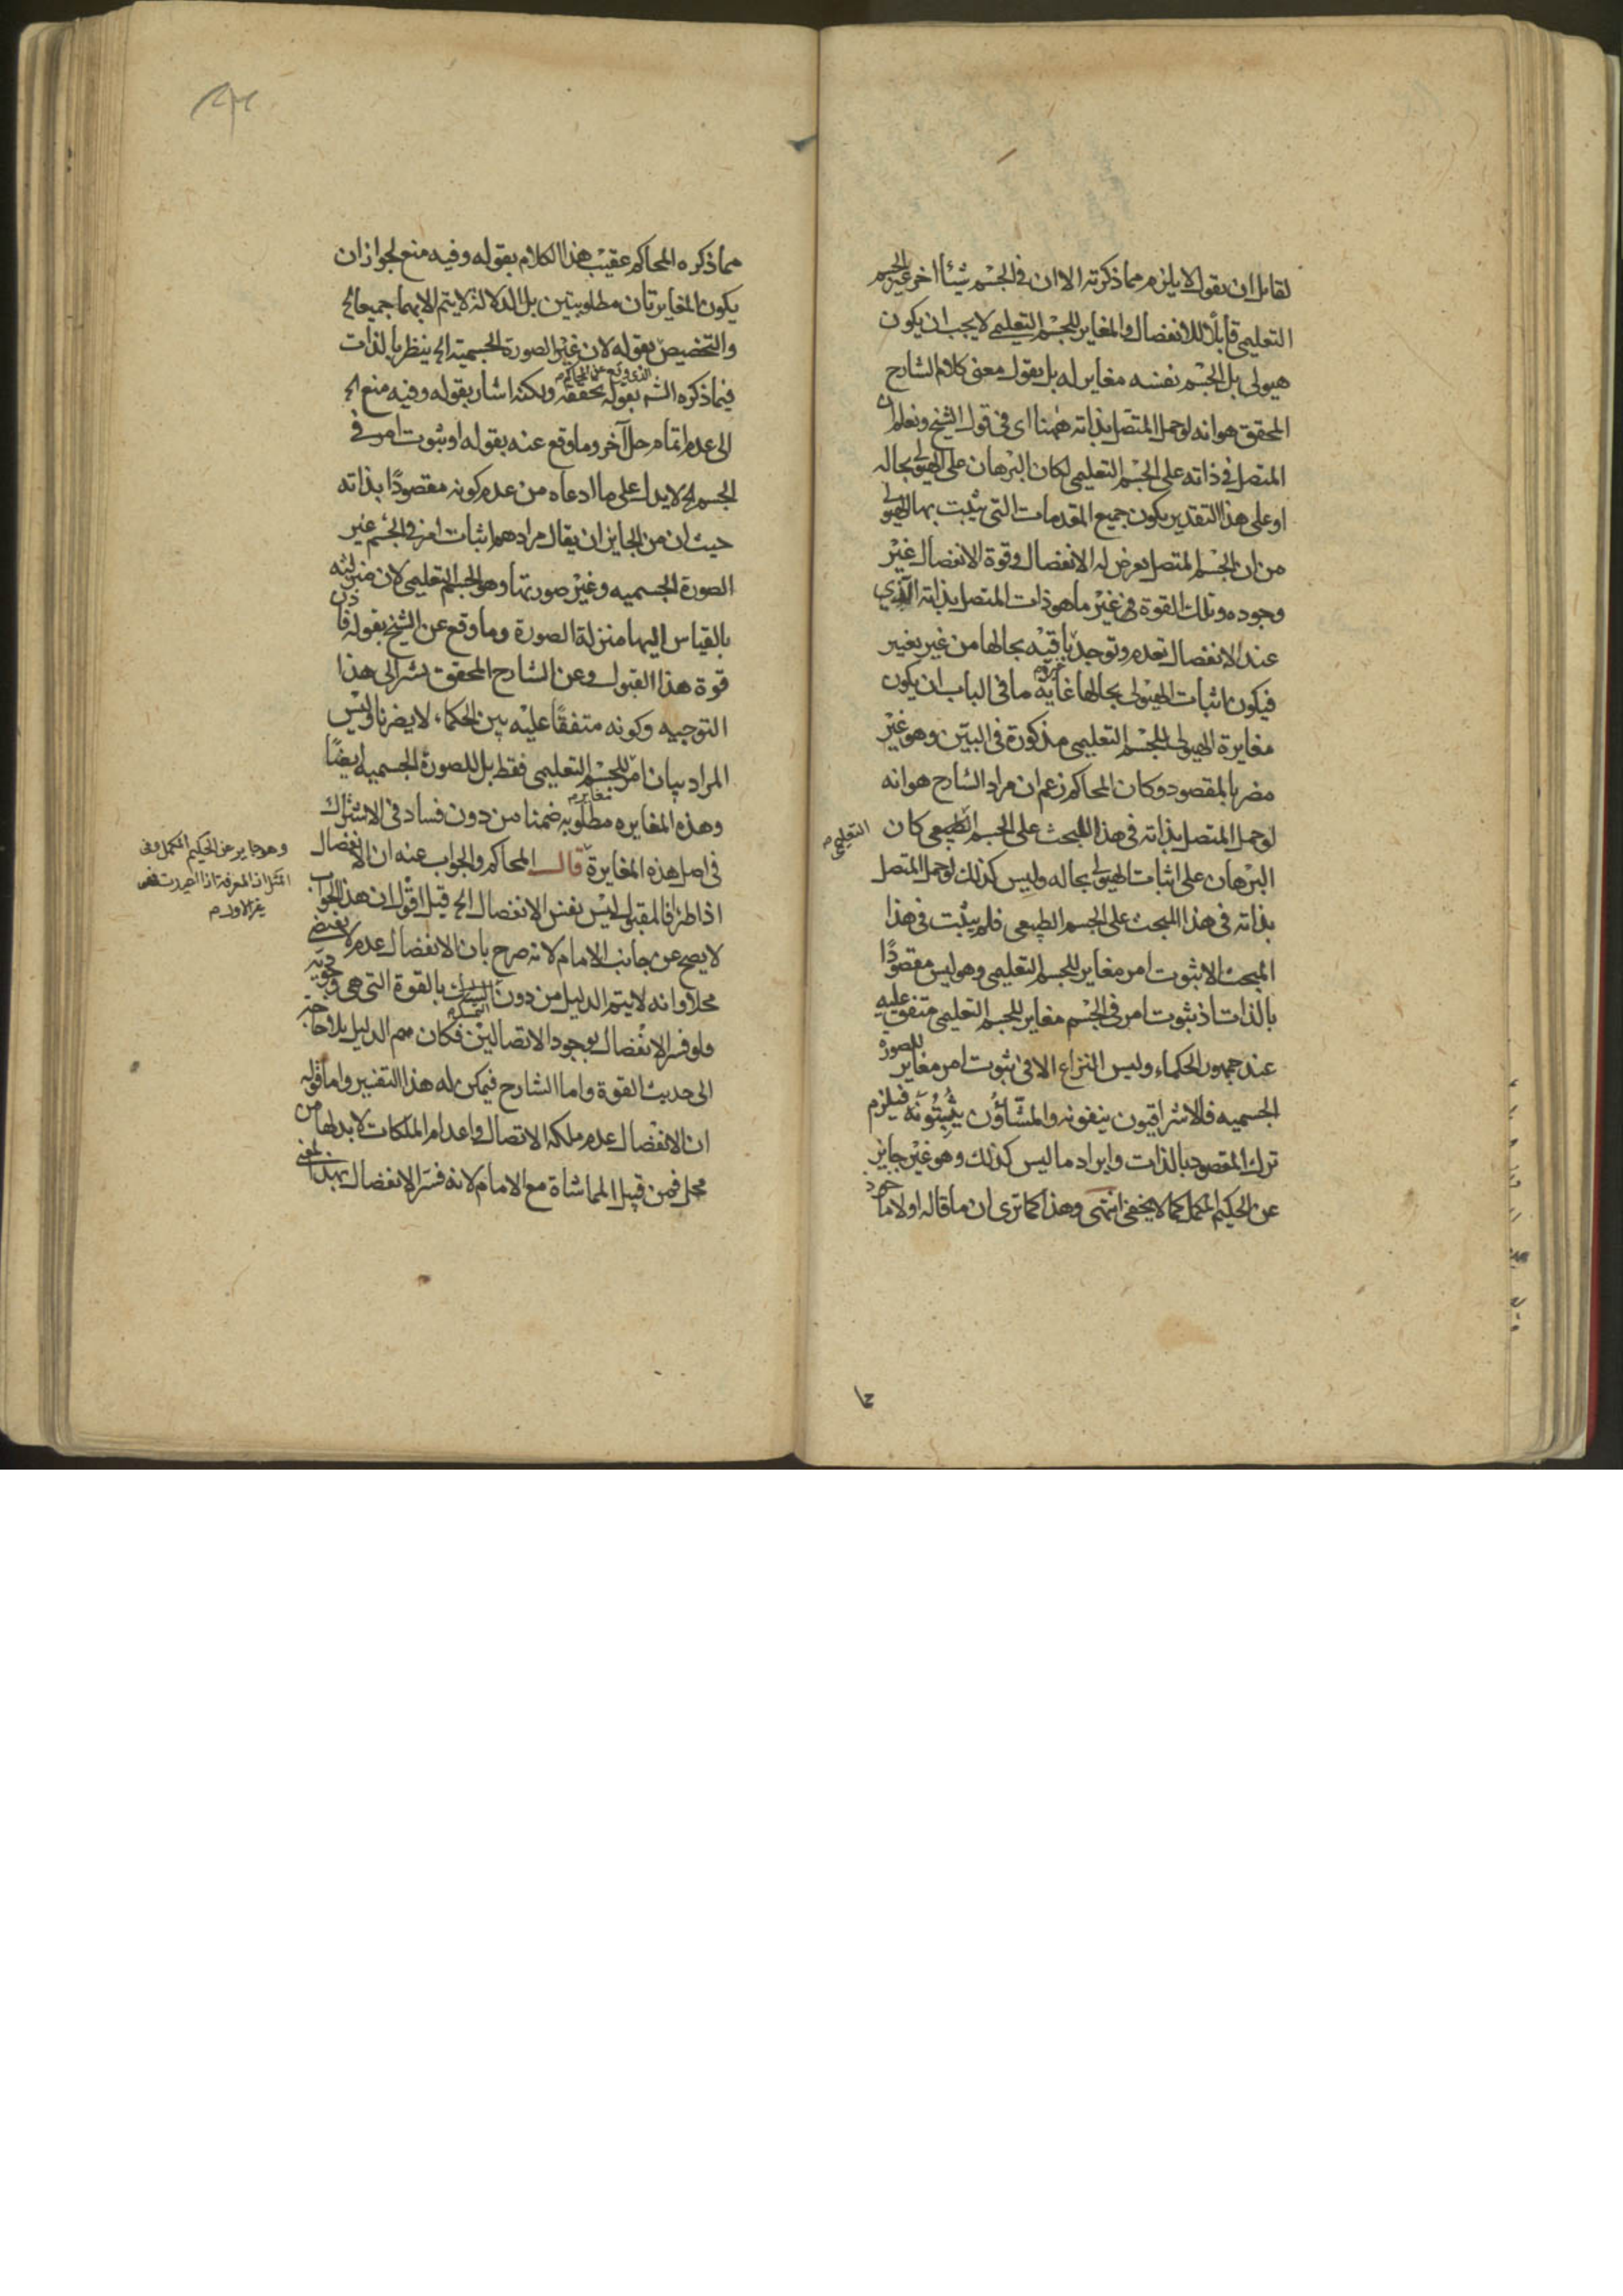 لقائل ان يقول لا يلزم مما ذكرته الا ان فى الجسم شيئا اخر غير الجسم
التعليمى قابلا للانفصال والمغاير للجسم التعليمى لا يجب ان يكون
هيولى بل الجسم نفسه مغاير له بل يقول معنى كلام الشارح
المحقق هو انه لو حمل المتصل بذاته ههنا اى فى قول الشيخ ونعلم ان
المتصل فى ذاته على الجسم التعليمى لكان البرهان على الهيولى بحاله
او على هذا التقدير يكون جميع المقدمات التى يثبت بها الهيولى
من ان الجسم المتصل يعرض له الانفصال وقوة الانفصال غير
وجوده وتلك القوة فى غير ما هو ذات المتصل بذاته الذي
عند الانفصال تعدم وتوجد باقيه بحالها من غير تغيير
فيكون اثبات الهيولى بحالها غايه ما فى الباب ان يكون
مغايرة الهيولى للجسم التعليمى مذكورة فى البين وهو غير
مضر بالمقصود وكان المحاكم زعم ان مراد الشارح هو انه
لو حمل المتصل بذاته فى هذا المبحث على الجسم الطبيعى كان
التعليمى
البرهان على اثبات الهيولى بحاله وليس كذلك لو حمل المتصل
بذاته فى هذا المبحث على الجسم الطبيعى فلم يثبت فى هذا
المبحث الا ثبوت امر مغاير للجسم التعليمى وهو ليس مقصودًا
بالذات اذ ثبوت امر فى الجسم مغاير للجسم التعليمى متفق عليه
عند جمهور الحكماء وليس النزاع الا فى ثبوت امر مغاير للصورة
الجسميه فالاشراقيون ينفونه والمشّاؤن يثبتونه فيلزم
ترك المقصود بالذات وايراد ما ليس كذلك وهو غير جايز
عن الحكيم المكمل كما لا يخفى انتهى وهذا كما ترى ان ما قاله اولا
مما ذكره المحاكم عقيب هذا الكلام بقوله وفيه منع لجواز ان
يكون المغايرتان مطلوبتين بل الدلالة لا يتم الا بهما جميعا الخ
والتخصيص بقوله لان غير الصورة الجسميه الخ ينظر بالذات
الذى وقع عن المحاكم
فيما ذكره الشه بقوله بحققه ولكنه اشار بقوله وفيه منع الخ
الى عدم اتمام حل آخر وما وقع عنه بقوله او ثبوت امر فى
الجسم الخ لا يدل على ما ادعاه من عدم كونه مقصودًا بذاته
حيث ان من الجايز ان يقال مرادهم اثبات امر فى الجسم غير
الصورة الجسميه وغير صورتها وهو الجسم التعليمى لان منزلته
بالقياس اليها منزلة الصورة وما وقع عن الشيخ بقوله فاذن
قوة هذا القبول وعن الشارح المحقق بشر الى هذا
التوجيه وكونه متفقًا عليه بين الحكماء لا يضرنا وليس
المراد بيان امر للجسم التعليمى فقط بل للصورة الجسميه ايضًا
مغاير
وهذه المغايره مطلوبه ضمنا من دون فساد فى الاشتراك
فى اصل هذه المغايرة قال المحاكم والجواب عنه ان الانفصال
وهو جاير عن الحكيم المكمل
اذا طرا فالمقبول ليس نفس الانفصال الخ قيل اقول ان هذا الجواب
لا يصح عن جانب الامام لانه صرح بان الانفصال عدم لا يقتضى
محلا وانه لا يتم الدليل من دون التمسك بالقوة التى هى وجوديه
ولو فسر الانفصال بوجود الاتصالين فكان يتم الدليل بلا حاجة
الى حديث القوة واما الشارح فيمكن له هذا التفسير واما قوله
ان الانفصال عدم ملكة الاتصال واعدام الملكات لا بد لها من
محل فمن قبيل المماشاة مع الامام لانه فسر الانفصال بهذا المعنى